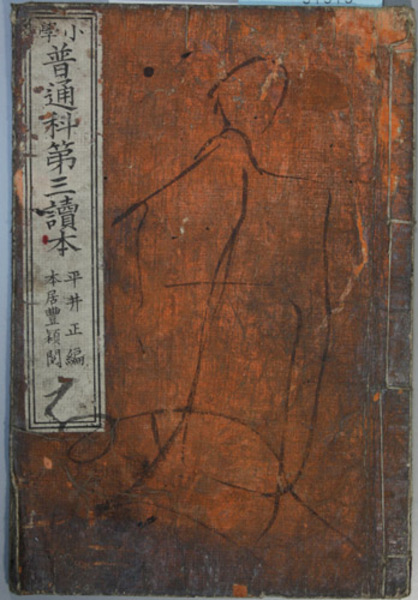 小學
普通科第三讀本
平井正編
本居豐穎閱